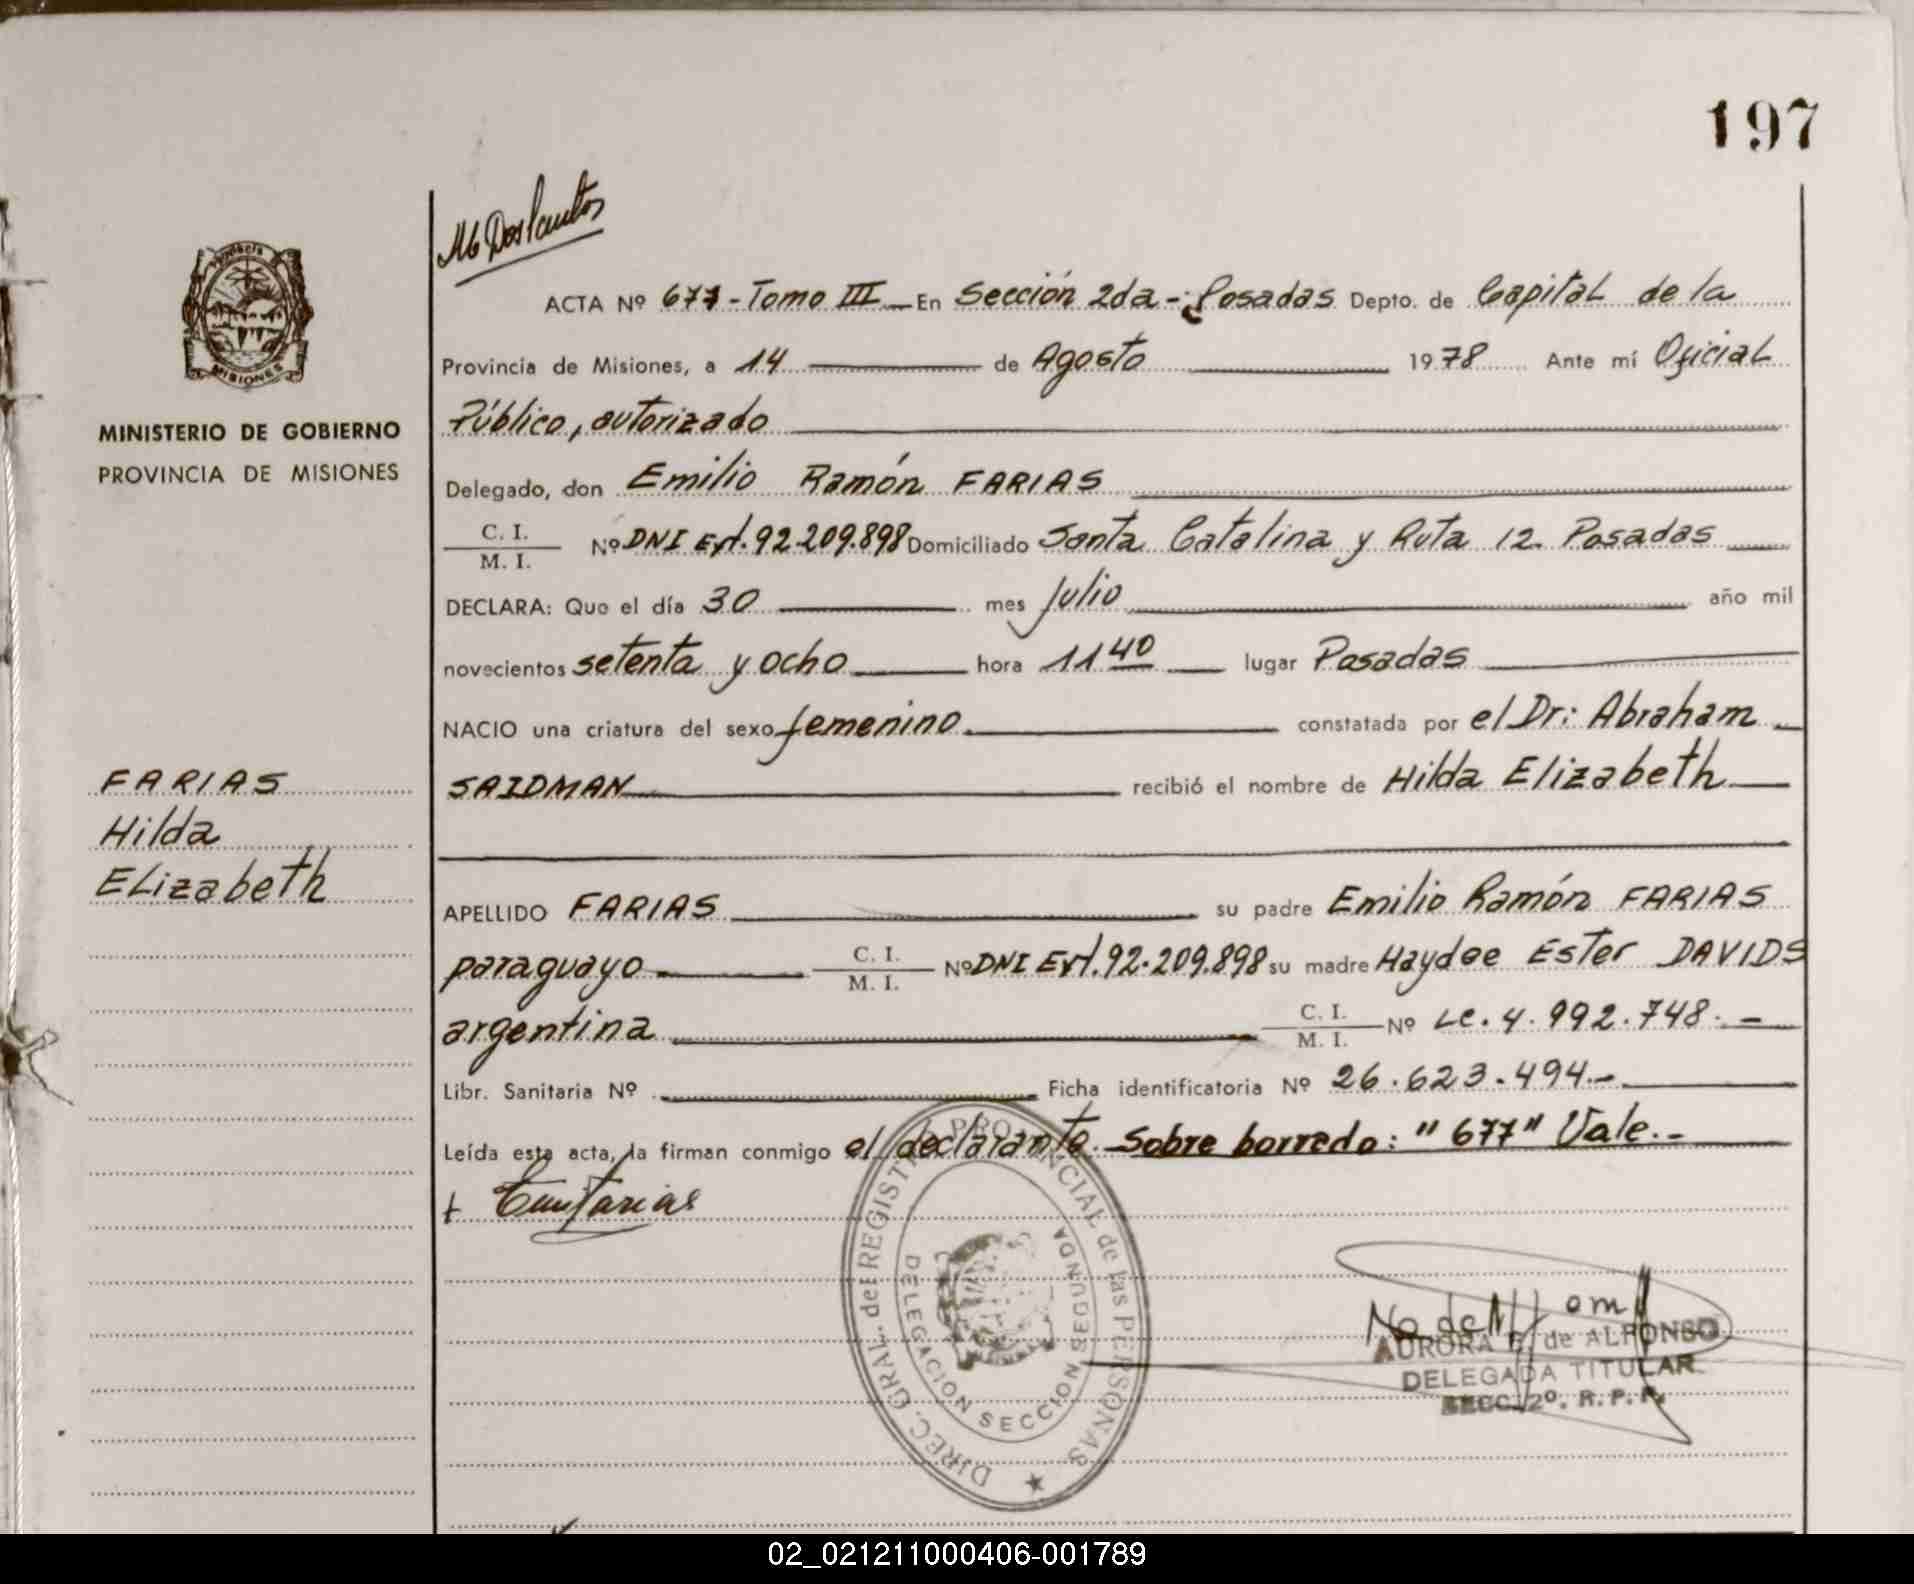 197
ACTA Nº 677 - Tomo III En Sección 2da - Posadas Depto. de Capital de la
Provincia de Misiones, a 14 de Agosto 1978 Ante mí Oficial
Público, autorizado
Delegado, don Emilio Ramón FARIAS
C. I.
M. I.
Nº DNI Ext. 92.209.898 Domiciliado Santa Catalina y Ruta 12. Posadas
DECLARA: Que el día 30 mes Julio año mil
novecientos setenta y ocho hora 11 40 lugar Posadas
NACIO una criatura del sexo femenino constatada por el Dr: Abraham
SAIDMAN recibió el nombre de Hilda Elizabeth
APELLIDO FARIAS su padre Emilio Ramón FARIAS
paraguayo C. I. M. I. Nº DNI Ext. 92.209.898 su madre Haydee Ester DAVIDS
argentina C. I. M. I. Nº LC. 4.992.748.-
Libr. Sanitaria Nº Ficha identificatoria Nº 26.623.494.-
Leída esta acta, la firman conmigo el declarante. Sobre borrado: "677" Vale.-
MISIONES
MINISTERIO DE GOBIERNO
PROVINCIA DE MISIONES
FARIAS
Hilda
Elizabeth
DIREC. GRAL. del REGISTRO PROVINCIAL de las PERSONAS
DELEGACION SECCION SEGUNDA
AURORA de ALFONSO
DELEGADA TITULAR
SECC. 2º. R. P. P.
02_021211000406-001789